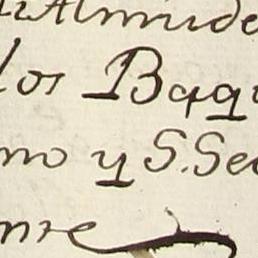 Almude
los Baq
no y S. Se
nre